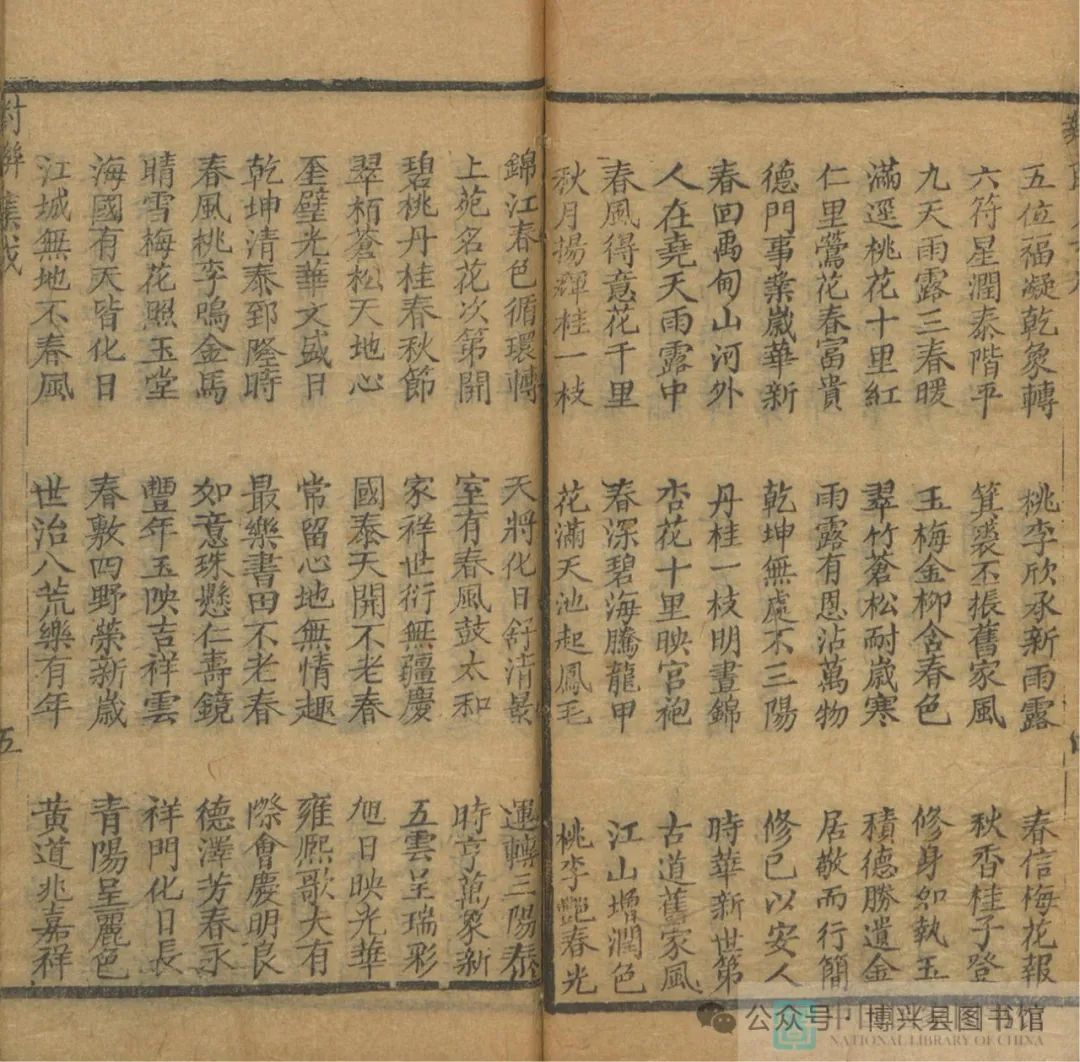 五位福凝乾象轉
六符星潤泰階平
九天雨露三春暖
滿逕桃花十里紅
仁里鶯花春富貴
德門事業歲華新
春回禹甸山河外
人在堯天雨露中
春風得意花千里
秋月揚輝桂一枝
桃李欣承新雨露
箕裘丕振舊家風
玉梅金柳含春色
翠竹蒼松耐歲寒
雨露有恩沾萬物
乾坤無處不三陽
丹桂一枝明晝錦
杏花十里映宮袍
春深碧海騰龍甲
花滿天池起鳳毛
春信梅花報
秋香桂子登
修身如執玉
積德勝遺金
居敬而行簡
修已以安人
時華新世第
古道舊家風
江山增潤色
桃李艷春光
錦江春色循環轉
上苑名花次第開
碧桃丹桂春秋節
翠栢蒼松天地心
奎璧光華文盛日
乾坤清泰郅隆時
春風桃李鳴金馬
晴雪梅花照玉堂
海國有天皆化日
江城無地不春風
天將化日舒清景
室有春風鼓太和
家祥世衍無疆慶
國泰天開不老春
常留心地無情趣
最樂書田不老春
如意珠懸仁壽鏡
豐年玉映吉祥雲
春敷四野榮新歲
世治八荒樂有年
運轉三陽泰
時亨萬象新
五雲呈瑞彩
旭日映光華
雍熙歌大有
際會慶明良
德澤芳春永
祥門化日長
青陽呈麗色
黃道兆嘉祥
對聯集成
五
公众号·博兴县图书馆
NATIONAL LIBRARY OF CHINA